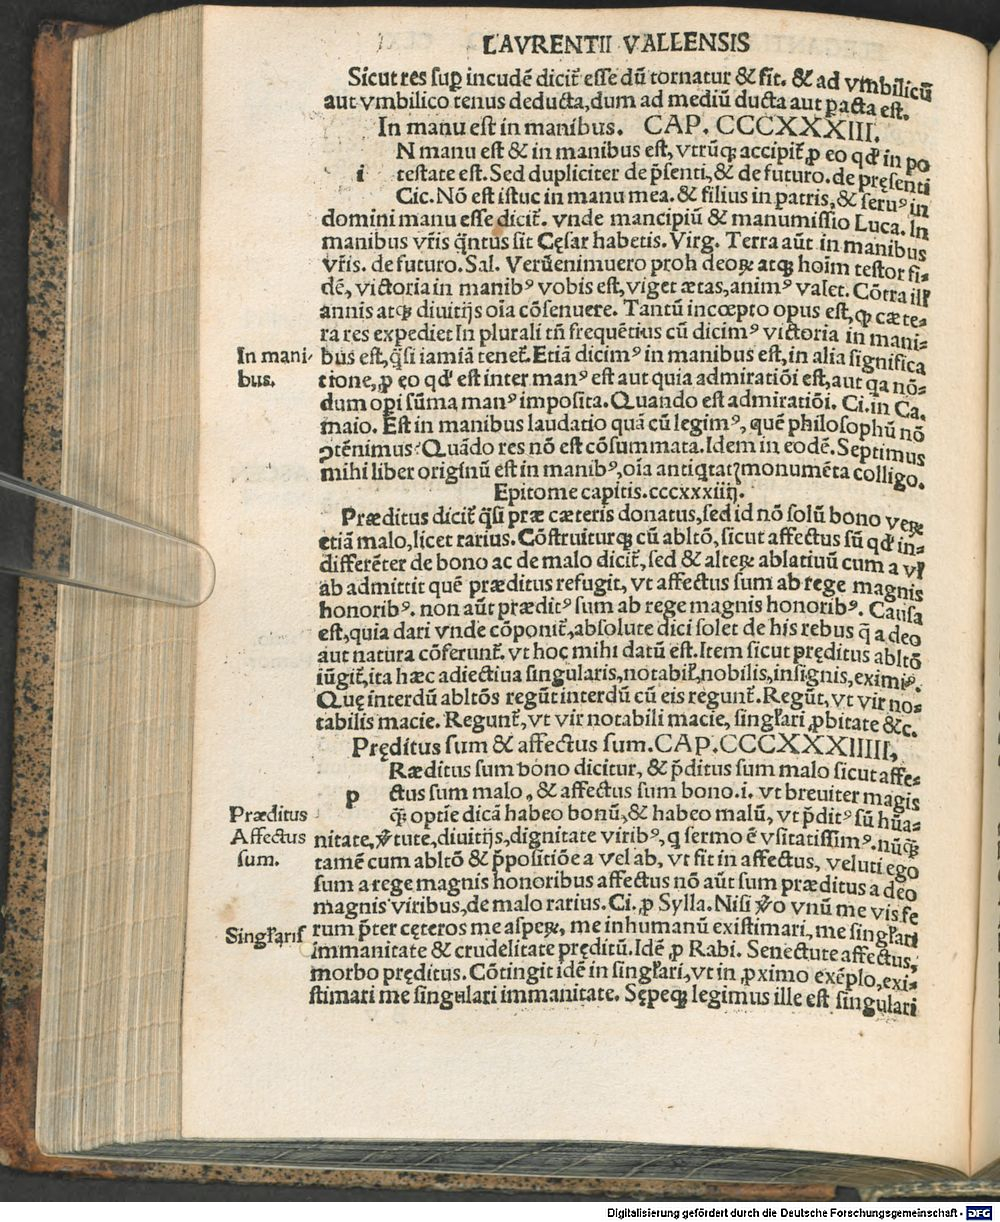 LAVRENTII VALLENSIS
Sicut res sup̱ incudē dicit᷑ esse dū tornatur & fit. & ad vmbilicū
aut vmbilico tenus deducta, dum ad mediū ducta aut ꝑacta est.
In manu est in manibus. CAP. CCCXXXIII.
N manu est & in manibus est, vtrūqꝫ accipit᷑ ꝓ eo qđ in po
i testate est. Sed dupliciter de p̄senti, & de futuro. de pręsenti
Cic. Nō est istuc in manu mea. & filius in patris, & seruꝰ in
domini manu esse dicit᷑. vnde mancipiū & manumissio Luca. In
manibus vr̄is q̄ntus sit Cęsar habetis. Virg. Terra aūt in manibus
vr̄is. de futuro. Sal. Verūenimuero proh deoꝝ atqꝫ hoīm testor fi-
dē, victoria in manibꝰ vobis est, viget ætas, animꝰ valet. Cōtra ill'
annis atqꝫ diuitijs oīa cōsenuere. Tantū incœpto opus est, qꝫ cæte-
ra res expediet In plurali tn̄ frequētius cū dicimꝰ victoria in mani-
In mani- bus est, q̄si iamiā tenet᷑. Etiā dicimꝰ in manibus est, in alia significa
bus. tione, ꝓ eo qđ est inter manꝰ est aut quia admiratiōi est, aut q̄a nō-
dum op̄i sūma manꝰ imposita. Quando est admiratiōi. Ci. in Ca.
maio. Est in manibus laudatio quā cū legimꝰ, quē philosophū nō
ↄtēnimus? Quādo res nō est cōsummata. Idem in eodē. Septimus
mihi liber originū est in manibꝰ, oīa antiq̄tatꝭ monumēta colligo.
Epitome capitis. cccxxxiiij.
Præditus dicit᷑ q̄si præ cæteris donatus, sed id nō solū bono veꝝ
etiā malo, licet rarius. Cōstruiturqꝫ cū abltō, sicut affectus sū qđ in-
differēter de bono ac de malo dicit᷑, sed & alteꝝ ablatiuū cum a vl'
ab admittit quē præditus refugit, vt affectus sum ab rege magnis
honoribꝰ. non aūt præditꝰ sum ab rege magnis honoribꝰ. Causa
est, quia dari vnde cōponit᷑, absolute dici solet de his rebus q̄ a deo
aut natura cōferunt᷑. vt hoc mihi datū est. Item sicut pręditus abltō
iūgit᷑, ita hæc adiectiua singularis, notabil', nobilis, insignis, eximiꝰ.
Quę interdū abltōs regūt interdū cū eis regunt᷑. Regūt, vt vir no-
tabilis macie. Regunt᷑, vt vir notabili macie, singl'ari ꝓbitate &c.
Pręditus sum & affectus sum. CAP. CCCXXXIIIII,
Ræditus sum bono dicitur, & p̄ditus sum malo sicut affe-
p ctus sum malo, & affectus sum bono. i. vt breuiter magis
Præditus qꝫ optīe dicā habeo bonū, & habeo malū, vt p̄ditꝰ sū hūa-
Affectus nitate, v̄tute, diuitijs, dignitate viribꝰ, q sermo ē vsitatissimꝰ. nūqꝫ
sum. tamē cum abltō & p̄positiōe a vel ab, vt fit in affectus, veluti ego
sum a rege magnis honoribus affectus nō aūt sum præditus a deo
magnis viribus, de malo rarius. Ci. ꝓ Sylla. Nisi v̄o vnū me vis fe
Singl'aris rum p̄ter cęteros me aspeꝝ, me inhumanū existimari, me singl'ari
immanitate & crudelitate pręditū. Idē ꝓ Rabi. Senectute affectus,
morbo pręditus. Cōtingit idē in singl'ari, vt in ꝓximo exēplo, exi-
stimari me singulari immanitate. Sępeqꝫ legimus ille est singulari
Digitalisierung gefördert durch die Deutsche Forschungsgemeinschaft - DFG